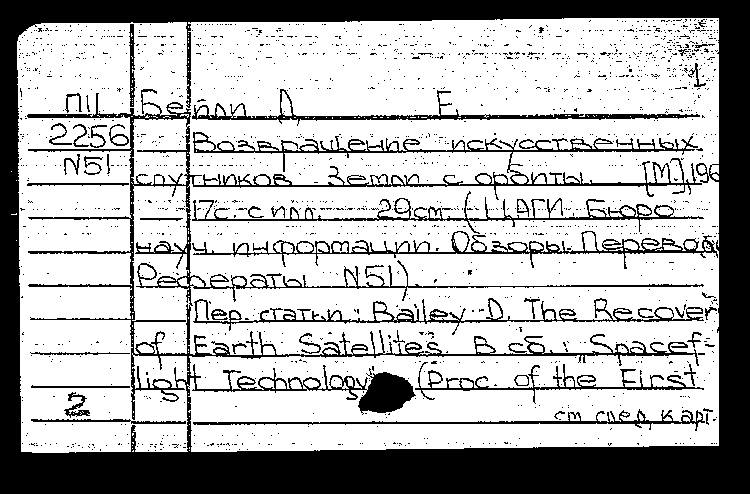 1
П11 Бейли Д. Е.
2256 Возвращение искусственных
N51 спутников Земли с орбиты. [М], 196
17с. с илл. 29см. (ЦАГИ. Бюро
науч. информации. Обзоры. Переводы
Рефераты N51).
Пер. статьи: Bailey D. The Recover
of Earth Satellites. В сб.: „Spacef-
light Technology" (Proc. of the First
2
см. след. карт.